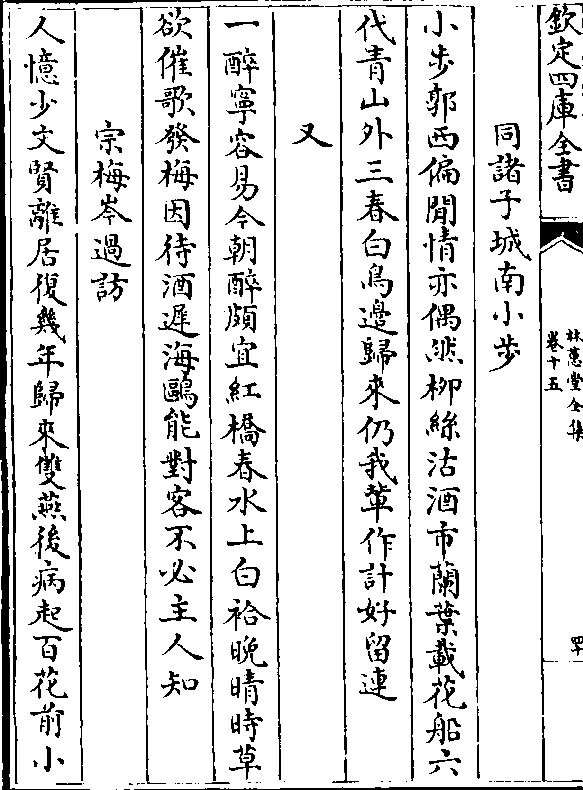 欽定四庫全書
林蕙堂全集
卷十五
同諸子城南小步
小步郭西偏閒情亦偶然柳絲沽酒市蘭葉載花船六
代青山外三春白鳥邊歸來仍我輩作計好留連
又
一醉寧容易今朝醉頗宜紅橋春水上白袷晚晴時草
欲催歌發梅因待酒遲海鷗能對客不必主人知
宗梅岑過訪
人憶少文賢離居復幾年歸來雙燕後病起百花前小